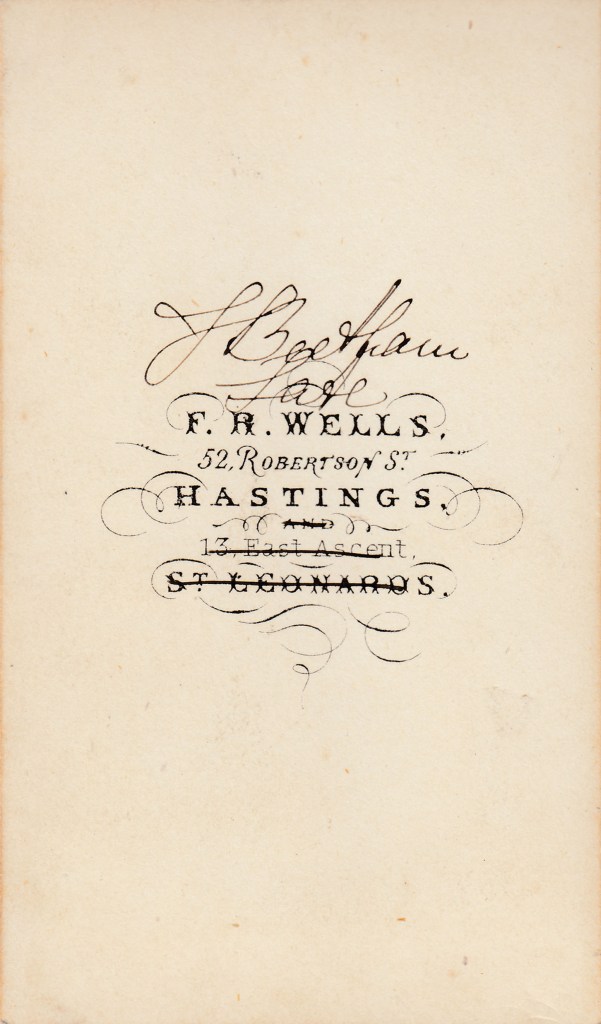 J Beetham
Late
F. R. WELLS,
52, ROBERTSON ST
HASTINGS,
AND
13, East Ascent,
ST LEONARDS.